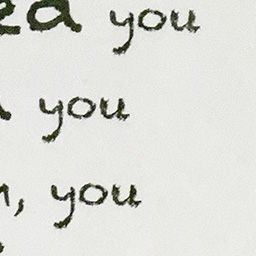 you
you
you